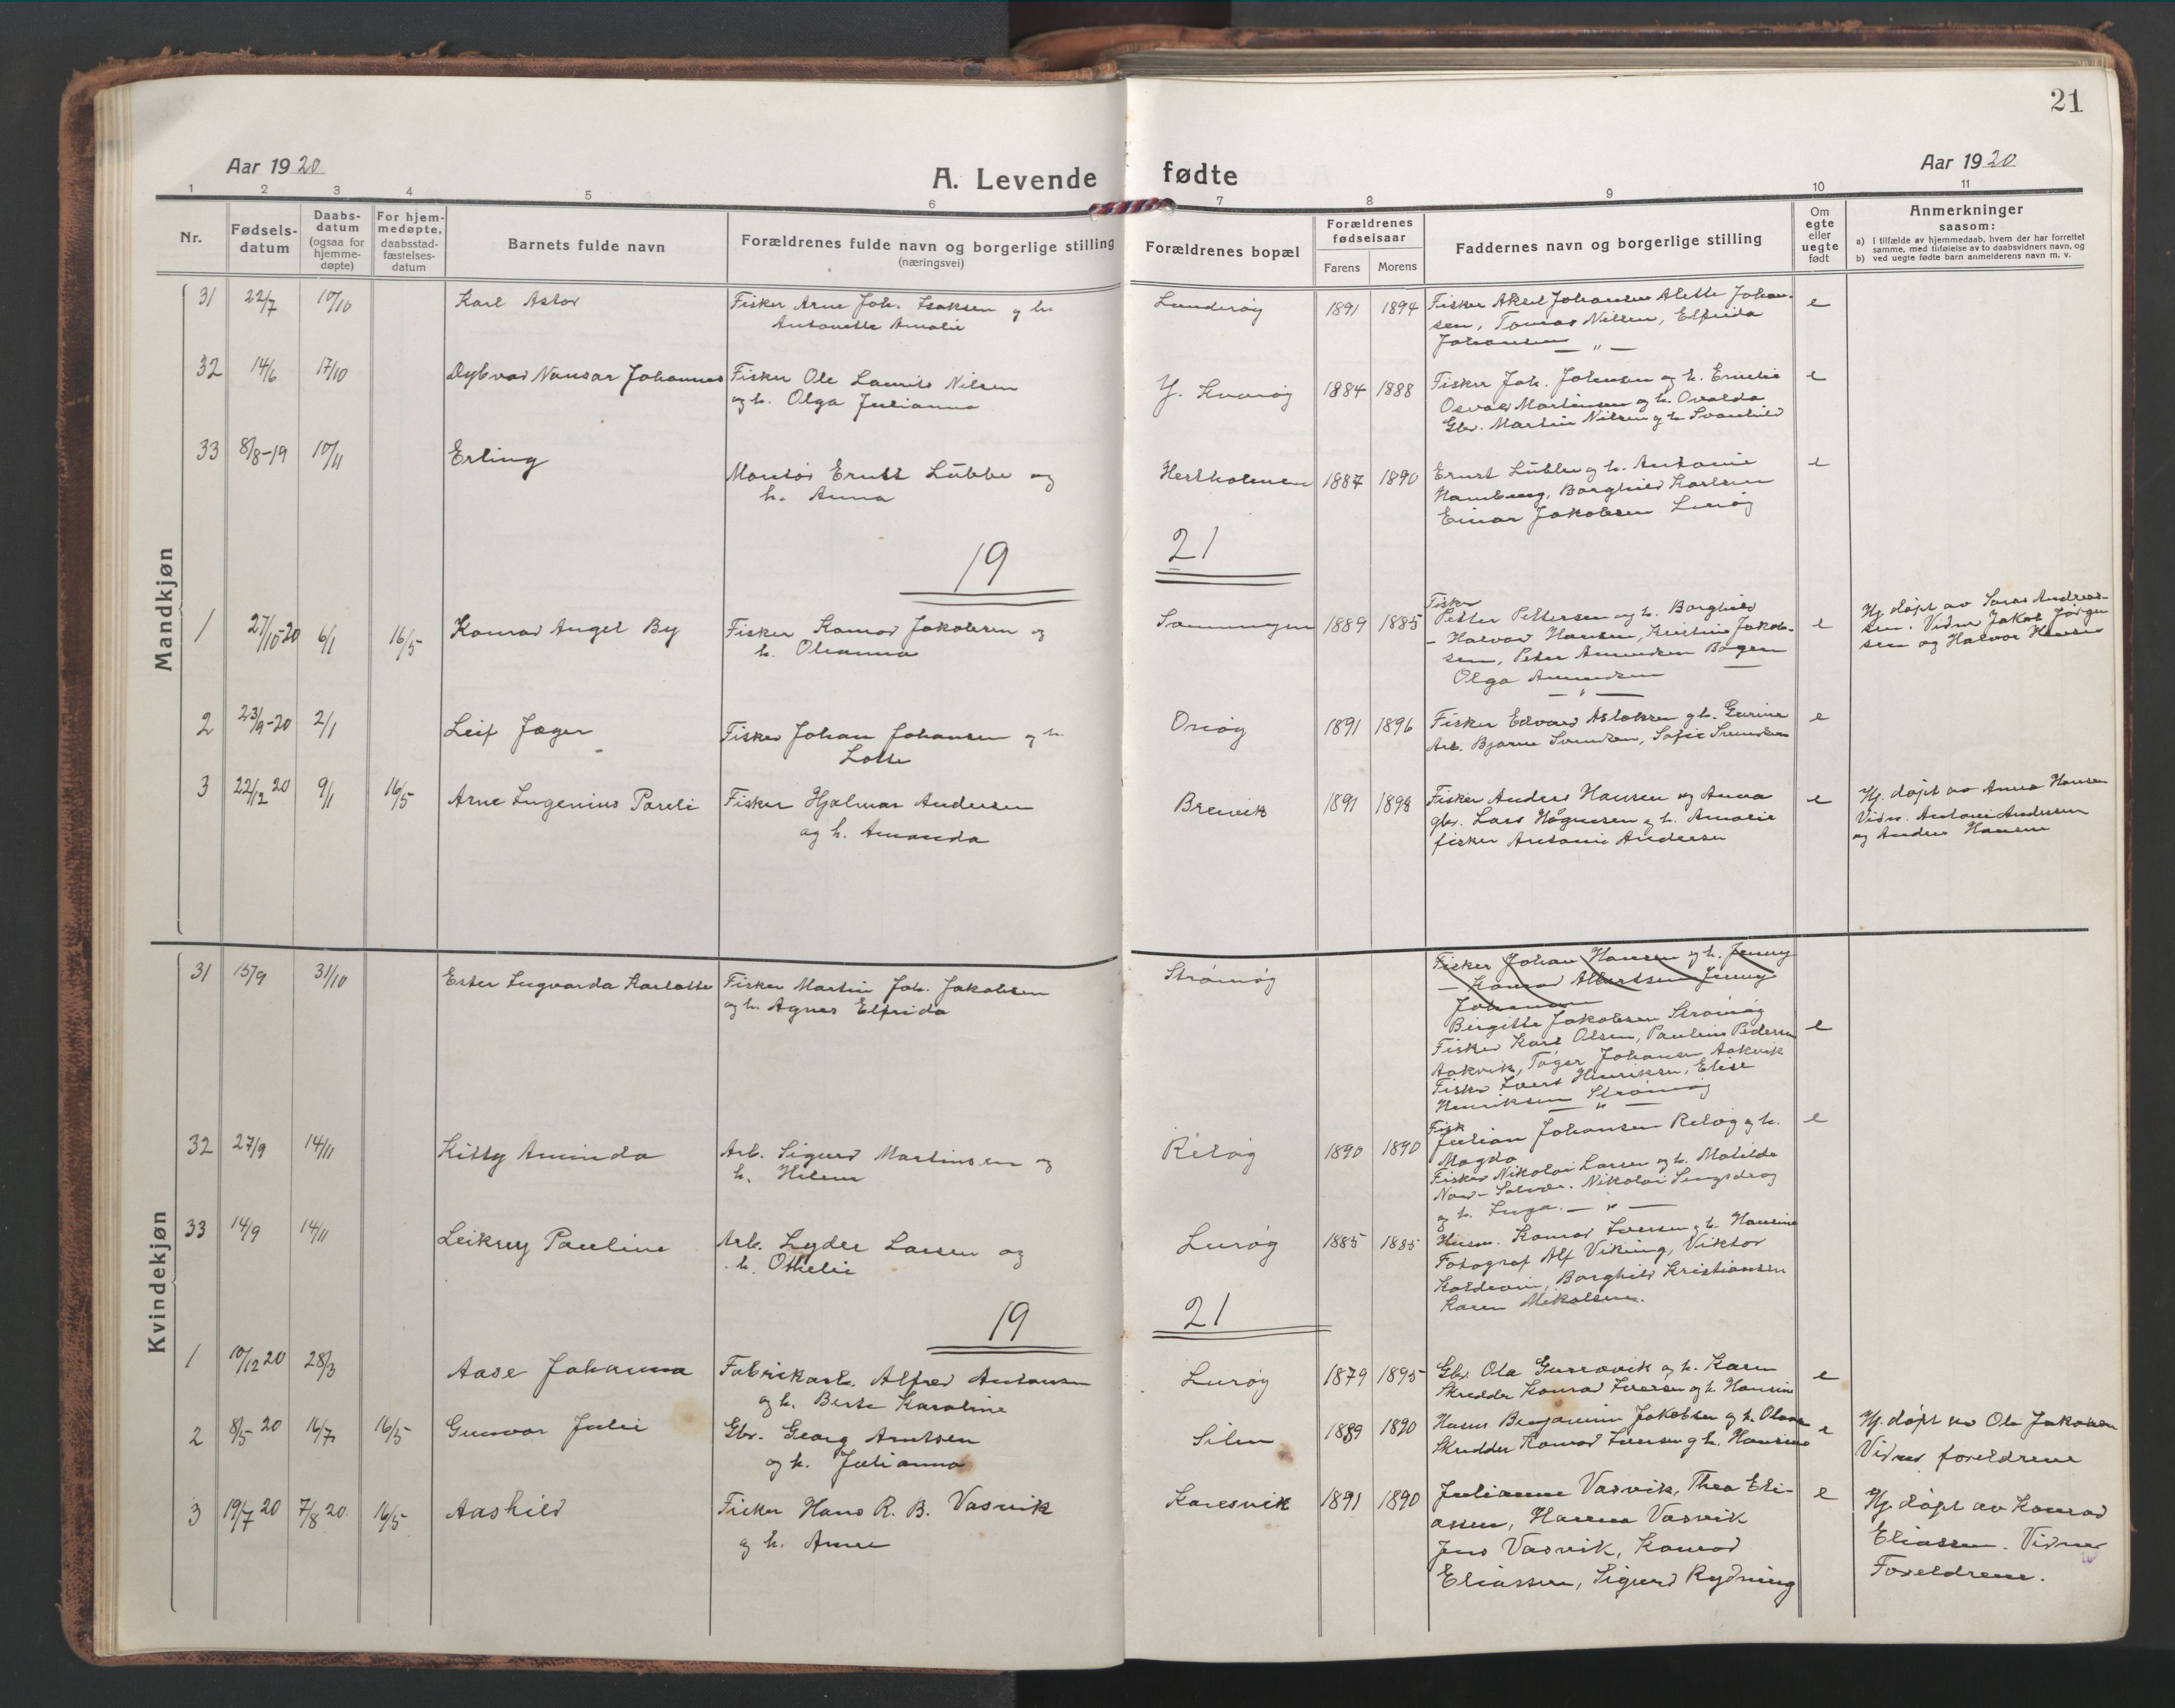 21
Aar 1920
A. Levende fødte
Aar 1920
1 2 3 4 5 6 7 8 9 10 11
Nr.
Fødsels-
datum
Daabs-
datum
(ogsaa for
hjemme-
døpte)
For hjem-
medøpte,
daabsstad-
fæstelses-
datum
Barnets fulde navn
Forældrenes fulde navn og borgerlige stilling
(næringsvei)
Forældrenes bopæl
Forældrenes
fødselsaar
Farens Morens
Faddernes navn og borgerlige stilling
Om
egte
eller
uegte
født
Anmerkninger
saasom:
a) i tilfælde av hjemmedaab, hvem der har forrettet
samme, med tilføielse av to daabsvidners navn, og
b) ved uegte fødte barn anmelderens navn m. v.
Mandkjøn
31 22/7 10/10 Karl Astor
Fisker Arne Joh. Isaksen og h.
Antonette Amalie
Lunderøy 1891 1894
Fisker Aksel Johansen Alette Johan-
sen, Tomas Nilsen, Elfrida
Johansen — " —
e
32 14/6 17/10 Dybvad Nansar Johannes
Fisker Ole Laurits Nilsen
og h. Olga Julianna
Y. Kvarøy 1884 1888
Fisker Joh. Johansen og h. Emelie
Osvald Martinsen og h. Ovalda
Gbr. Martin Nilsen og h. Svanhild
e
33 8/8-19 10/11 Erling
Montør Ernst Lübbe og
h. Anna
Hestholmen 1887 1890
Ernst Lübbe og h. Antonie
Hamburg, Borghild Karlsen
Einar Jakobsen Lurøy
e
19 21
1 27/10-20 6/1 16/5 Konrad Angel By
Fisker Konrad Jakobsen og
h. Olianna
1889 1885
Fisker
Petter Pettersen og h. Borghild
- Halvor Hansen, Kristine Jakob-
sen, Peter Amundsen Bogen
Olga Amundsen
— " —
e
Hj. døpt av Andreas-
sen. Vidner Jakob Jørgen
sen og Halvor Hansen
2 23/9-20 2/1 Leif Jæger
Fisker Johan Johansen og h.
Lotte
Onøy 1891 1896
Fisker Edvard Aslaksen og h. Gurine
Arb. Bjarne Svendsen, Sofie Svendsen
e
3 22/12 20 9/1 16/5 Arne Eugenius Pareli
Fisker Hjalmar Andersen
og h. Amanda
Breivik 1891 1898
Fisker Anders Hansen og Anna
gbr. Lars Høgnesen og h. Amalie
fisker Antoni Andersen
e
Hj. døpt av Anna Hansen
Vidn. Antoni Andersen
og Anders Hansen
Kvindekjøn
31 15/9 31/10 Ester Ingvarda Karlotte
Fisker Martin Joh. Jakobsen
og h. Agnes Elfrida
Strømøy
Fisker Johan Hansen og h. Jenny
- Konrad Albertsen Jenny
Johansen
Birgitte Jakobsen Strømøy
Fisker Karl Olsen, Pauline Pedersen
Aakvik, Tøger Johansen Aakvik
Fisker Ivert Henriksen, Elise
Henriksen Strømøy
— " —
e
32 27/9 14/11 Kitty Aminda
Arb. Sigurd Martinsen og
h. Helene
Reløy 1890 1890
Fisk
Julian Johansen Reløy og h.
Magda
Fisker Nikolai Larsen og h. Matilde
Nord-Solvær. Nikolai
og h. Inga. — " —
e
33 14/9 14/11 Leikny Pauline
Arb. Lyder Larsen og
h. Othelie
Lurøy 1885 1885
Husm. Konrad Iversen og h. Hansine
Fotograf Alf Viking, Viktor
Koldevin, Borghild Kristiansen
Karen Mikalsen.
19 21
1 10/12 20 28/3 Aase Johanna
Fabrikarb. Alfred Antonsen
og h. Berte Karoline
Lurøy 1879 1895
Gbr. Ola Gurravik og h. Karen
Skredder Konrad Iversen og h. Hansine
e
2 8/5-20 16/7 16/5 Gunvor Julie
Gbr. Georg Arntsen
og h. Julianna
Silen 1889 1890
Husm Benjamin Jakobsen og h. Olava
Skredder Konrad Iversen og h. Hansine
e
Hj. døpt av Ole Jakobsen
Vidner foreldrene
3 19/7 20 7/8 20 16/5 Aashild
Fisker Hans R. B. Vasvik
og h. Anne
Karesvik 1891 1890
Julianne Vasvik, Thea Eli-
assen, Hanna Vasvik
Jens Vasvik, Konrad
Eliassen, Sigurd Rydning
e
Hj. døpt av Konrad
Eliassen. Vidner
Foreldrene.